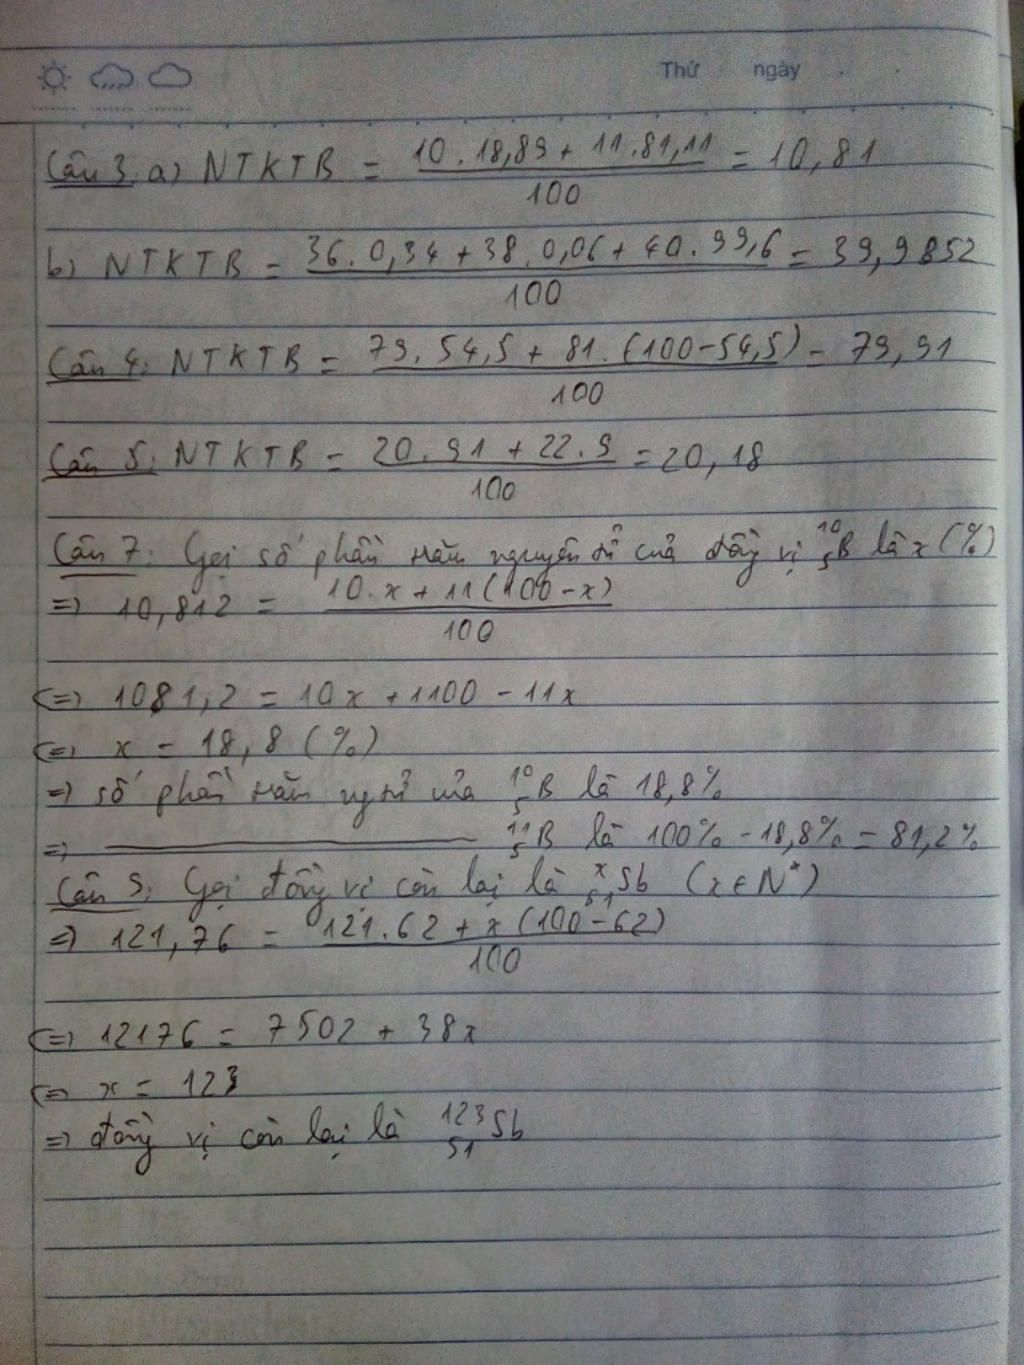 Thứ ngày
Câu 3. a) NTKTB = (10.18,89 + 11.81,11)/100 = 10,81
b) NTKTB = (36.0,34 + 38.0,06 + 40.99,6)/100 = 39,9852
Câu 4: NTKTB = (79.54,5 + 81.(100-54,5))/100 = 79,91
Câu 5: NTKTB = (20.91 + 22.9)/100 = 20,18
Câu 7: Gọi số phần trăm nguyên tử của đồng vị ¹⁰₅B là x (%)
=> 10,812 = (10.x + 11(100-x))/100
<=> 1081,2 = 10x + 1100 - 11x
<=> x = 18,8 (%)
=> số phần trăm ng tử của ¹⁰₅B là 18,8%
=> ¹¹₅B là 100% - 18,8% = 81,2%
Câu 9: Gọi đồng vị còn lại là ˣ₅₁Sb (x ∈ N*)
=> 121,76 = (121.62 + x(100-62))/100
<=> 12176 = 7502 + 38x
<=> x = 123
=> đồng vị còn lại là ¹²³₅₁Sb